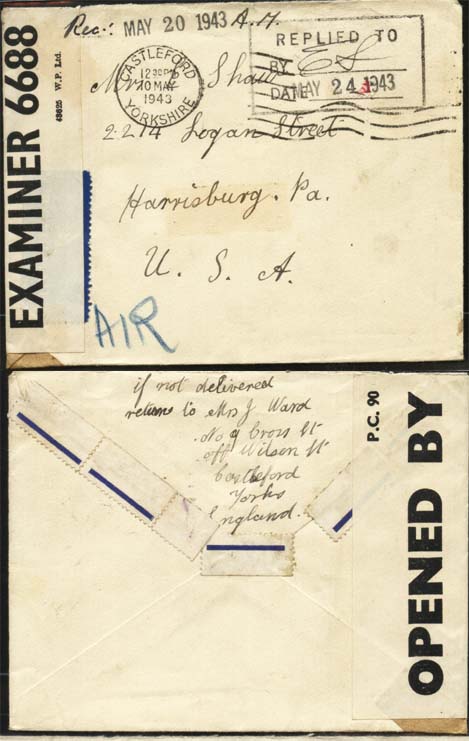 EXAMINER 6688
43625 W.P. Ltd.
Rec: MAY 20 1943 A.M.
CASTLEFORD
12 30 PM
10 MAY
1943
YORKSHIRE
REPLIED TO
BY ES
DATE MAY 24 1943
Mr Shaw
2214 Logan Street
Harrisburg. Pa.
U. S. A.
AIR
if not delivered
return to Mrs J Ward
No 9 Cross St
off Wilson St
Castleford
Yorks
England.
P.C. 90
OPENED BY